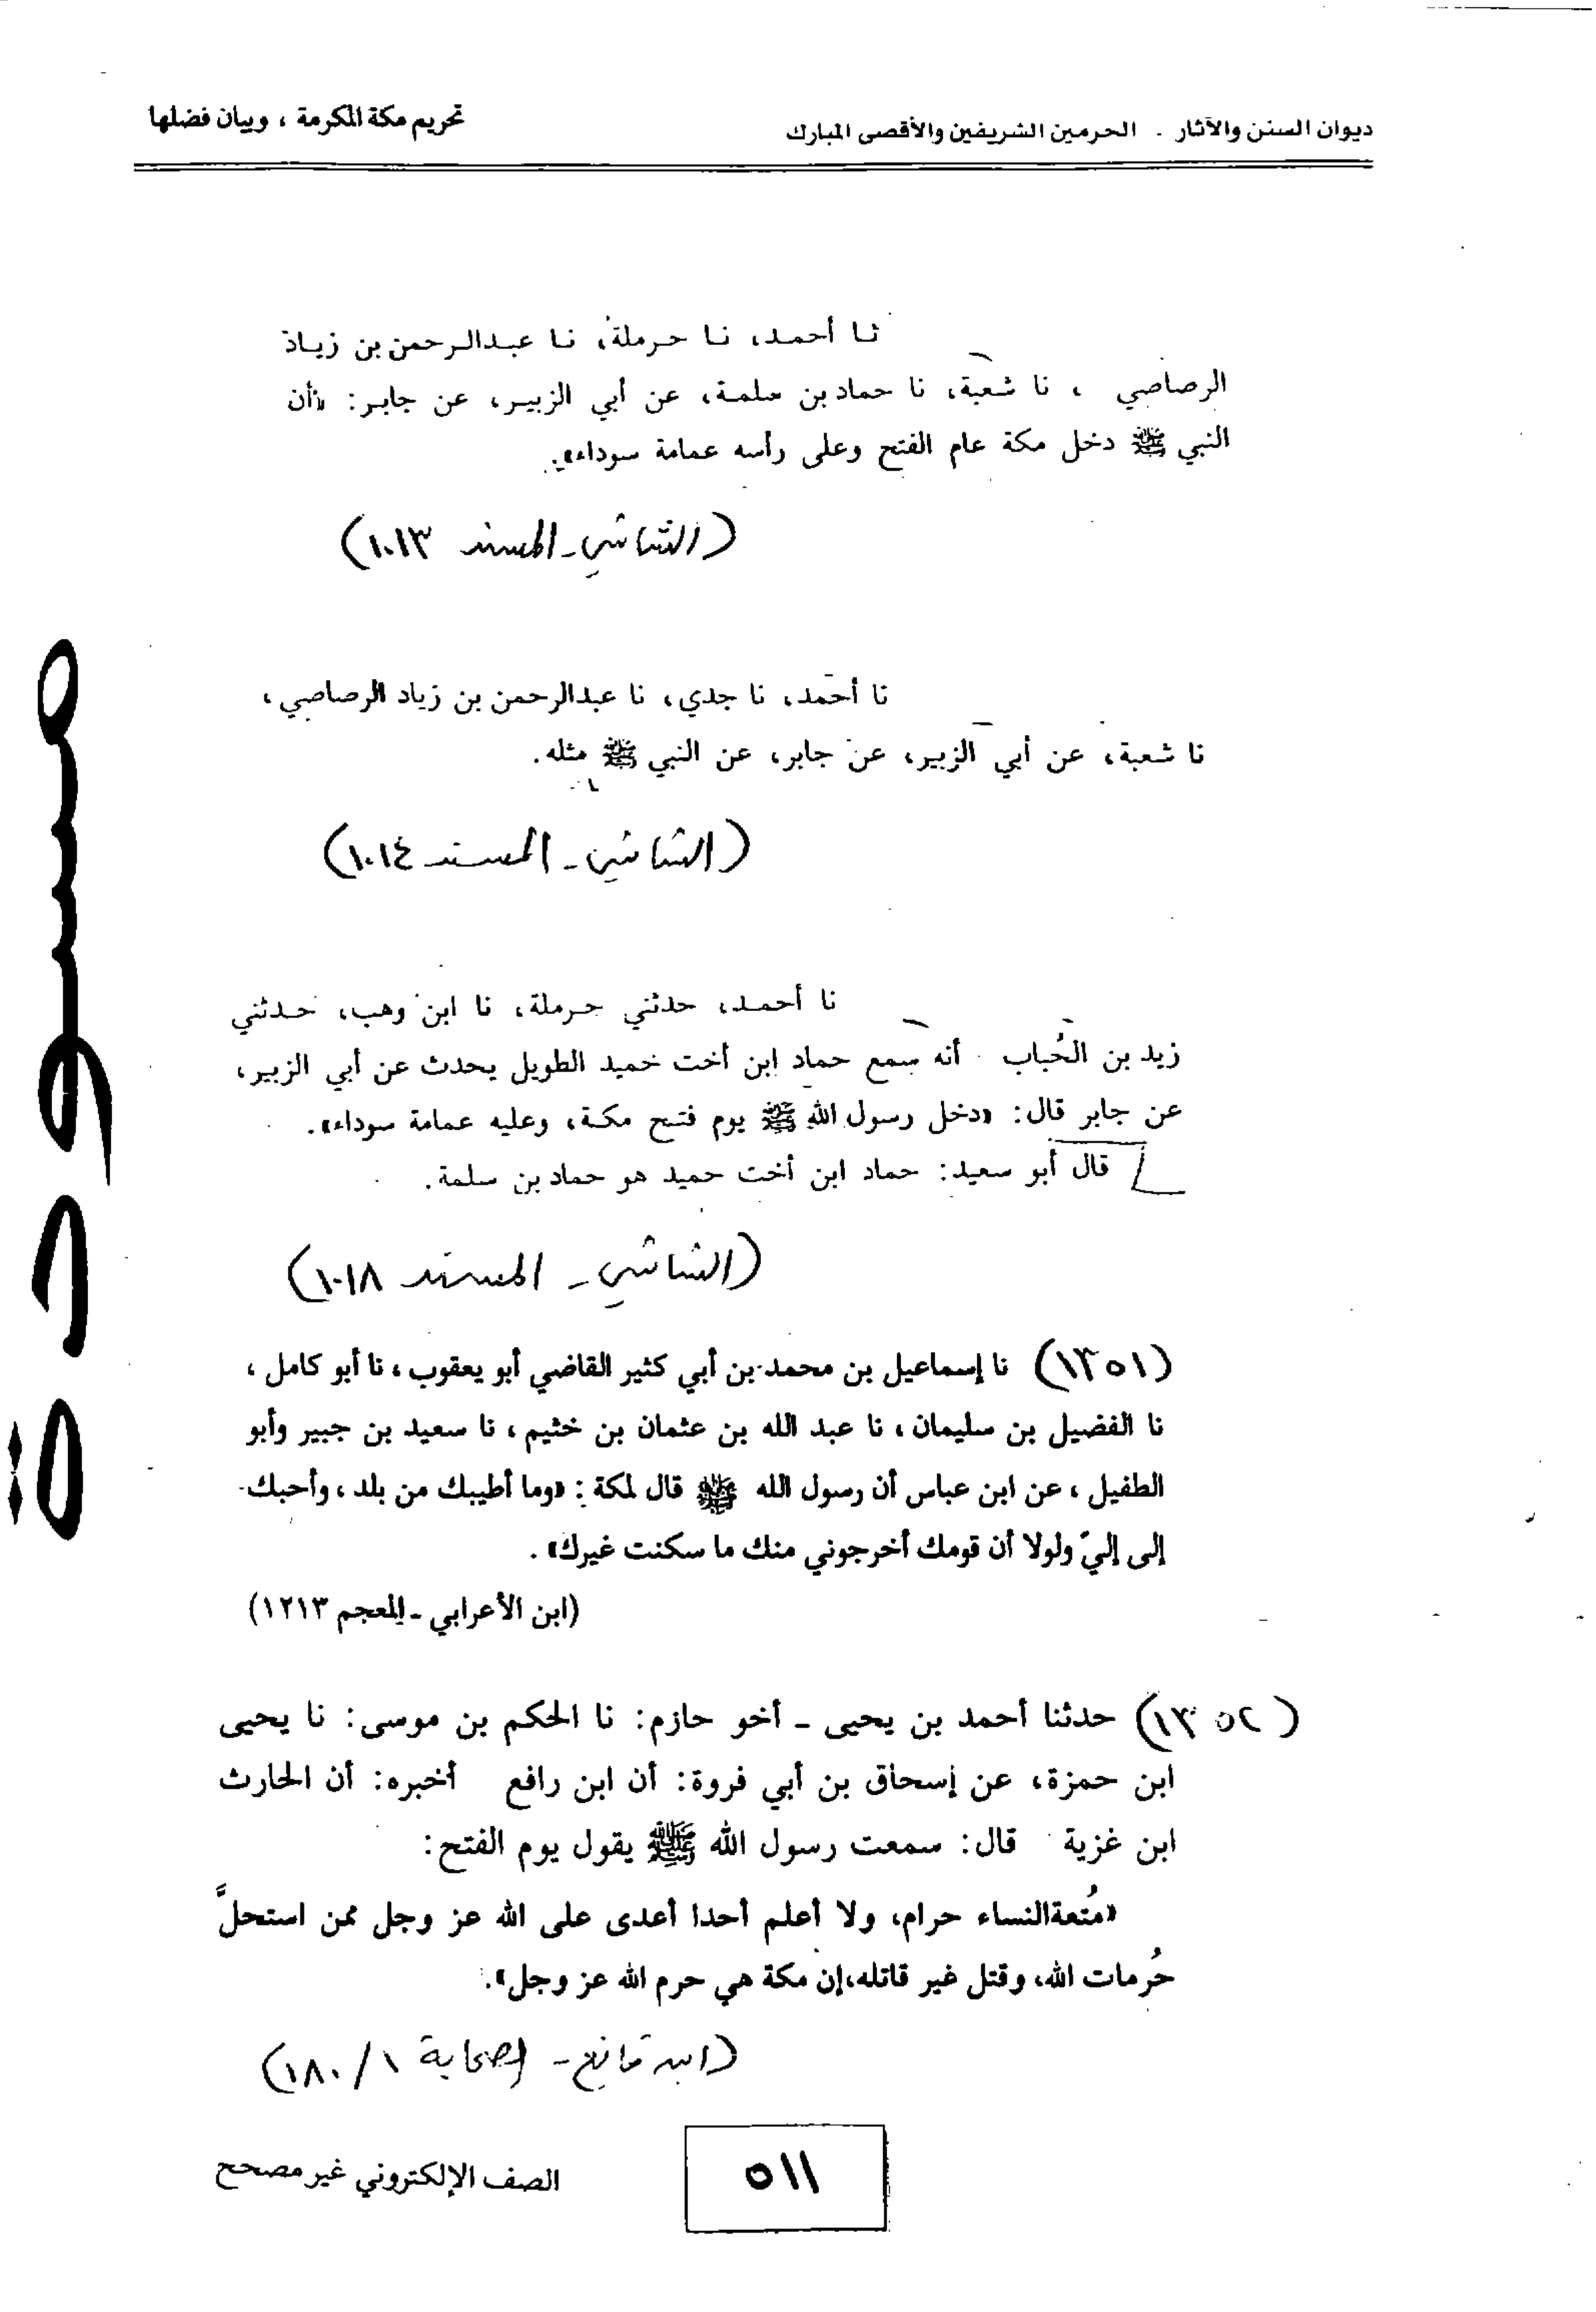 ديوان السنن والآثار - الحرمين الشريفين والأقصى المبارك
تحريم مكة المكرمة ، وبيان فضلها
نا أحمد، نا حرملة، نا عبدالرحمن بن زياد
الرصاصي ، نا شعبة، نا حماد بن سلمة، عن أبي الزبير، عن جابر: «أن
النبي ﷺ دخل مكة عام الفتح وعلى رأسه عمامة سوداء».
(الشاشي - المسند ١٠١٣)
نا أحمد، نا جدي، نا عبدالرحمن بن زياد الرصاصي،
نا شعبة، عن أبي الزبير، عن جابر، عن النبي ﷺ مثله.
(الشاشي - المسند ١٠١٤)
نا أحمد، حدثني حرملة، نا ابن وهب، حدثني
زيد بن الحُباب أنه سمع حماد ابن أخت حميد الطويل يحدث عن أبي الزبير،
عن جابر قال: «دخل رسول الله ﷺ يوم فتح مكة، وعليه عمامة سوداء».
قال أبو سعيد: حماد ابن أخت حميد هو حماد بن سلمة.
(الشاشي - المسند ١٠١٨)
(١٣٥١) نا إسماعيل بن محمد بن أبي كثير القاضي أبو يعقوب ، نا أبو كامل ،
نا الفضيل بن سليمان ، نا عبد الله بن عثمان بن خثيم ، نا سعيد بن جبير وأبو
الطفيل ، عن ابن عباس أن رسول الله ﷺ قال لمكة : «وما أطيبك من بلد ، وأحبك
إلى إليّ ولولا أن قومك أخرجوني منك ما سكنت غيرك» .
(ابن الأعرابي - المعجم ١٢١٣)
(١٣٥٢) حدثنا أحمد بن يحيى - أخو حازم: نا الحكم بن موسى: نا يحيى
ابن حمزة، عن إسحاق بن أبي فروة: أن ابن رافع أخبره: أن الحارث
ابن غزية قال: سمعت رسول الله ﷺ يقول يوم الفتح:
«مُتعةالنساء حرام، ولا أعلم أحدا أعدى على الله عز وجل ممن استحلَّ
حُرمات الله، وقتل غير قاتله،إن مكة هي حرم الله عز وجل».
(ابن قانع - الصحابة ١/١٨٠)
٥١١
الصف الإلكتروني غير مصحح
مسودة